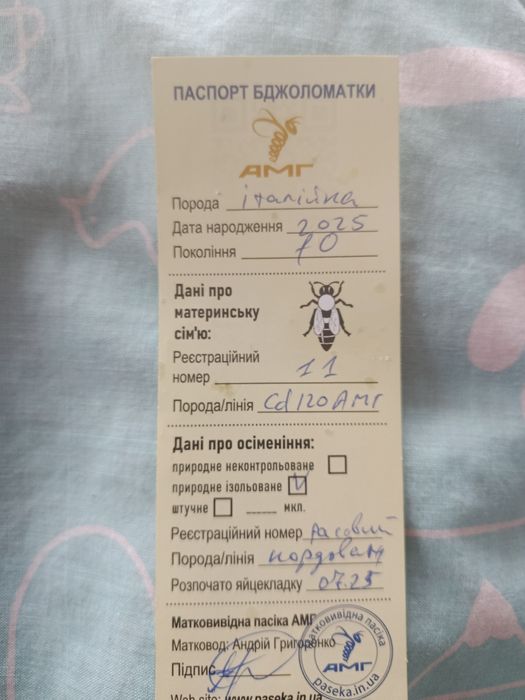 ПАСПОРТ БДЖОЛОМАТКИ
АМГ
Порода італійка
Дата народження 2025
Покоління F0
Дані про
материнську
сім'ю:
Реєстраційний
номер 11
Порода/лінія Cd120 АМГ
Дані про осіменіння:
природне неконтрольоване
природне ізольоване
штучне мкл.
Реєстраційний номер расовий
Порода/лінія кордован
Розпочато яйцекладку 07.25
Матковивідна пасіка АМГ
Матковод: Андрій Григоренко
Підпис
матковивідна пасіка
АМГ
paseka.in.ua
Web site: www.paseka.in.ua